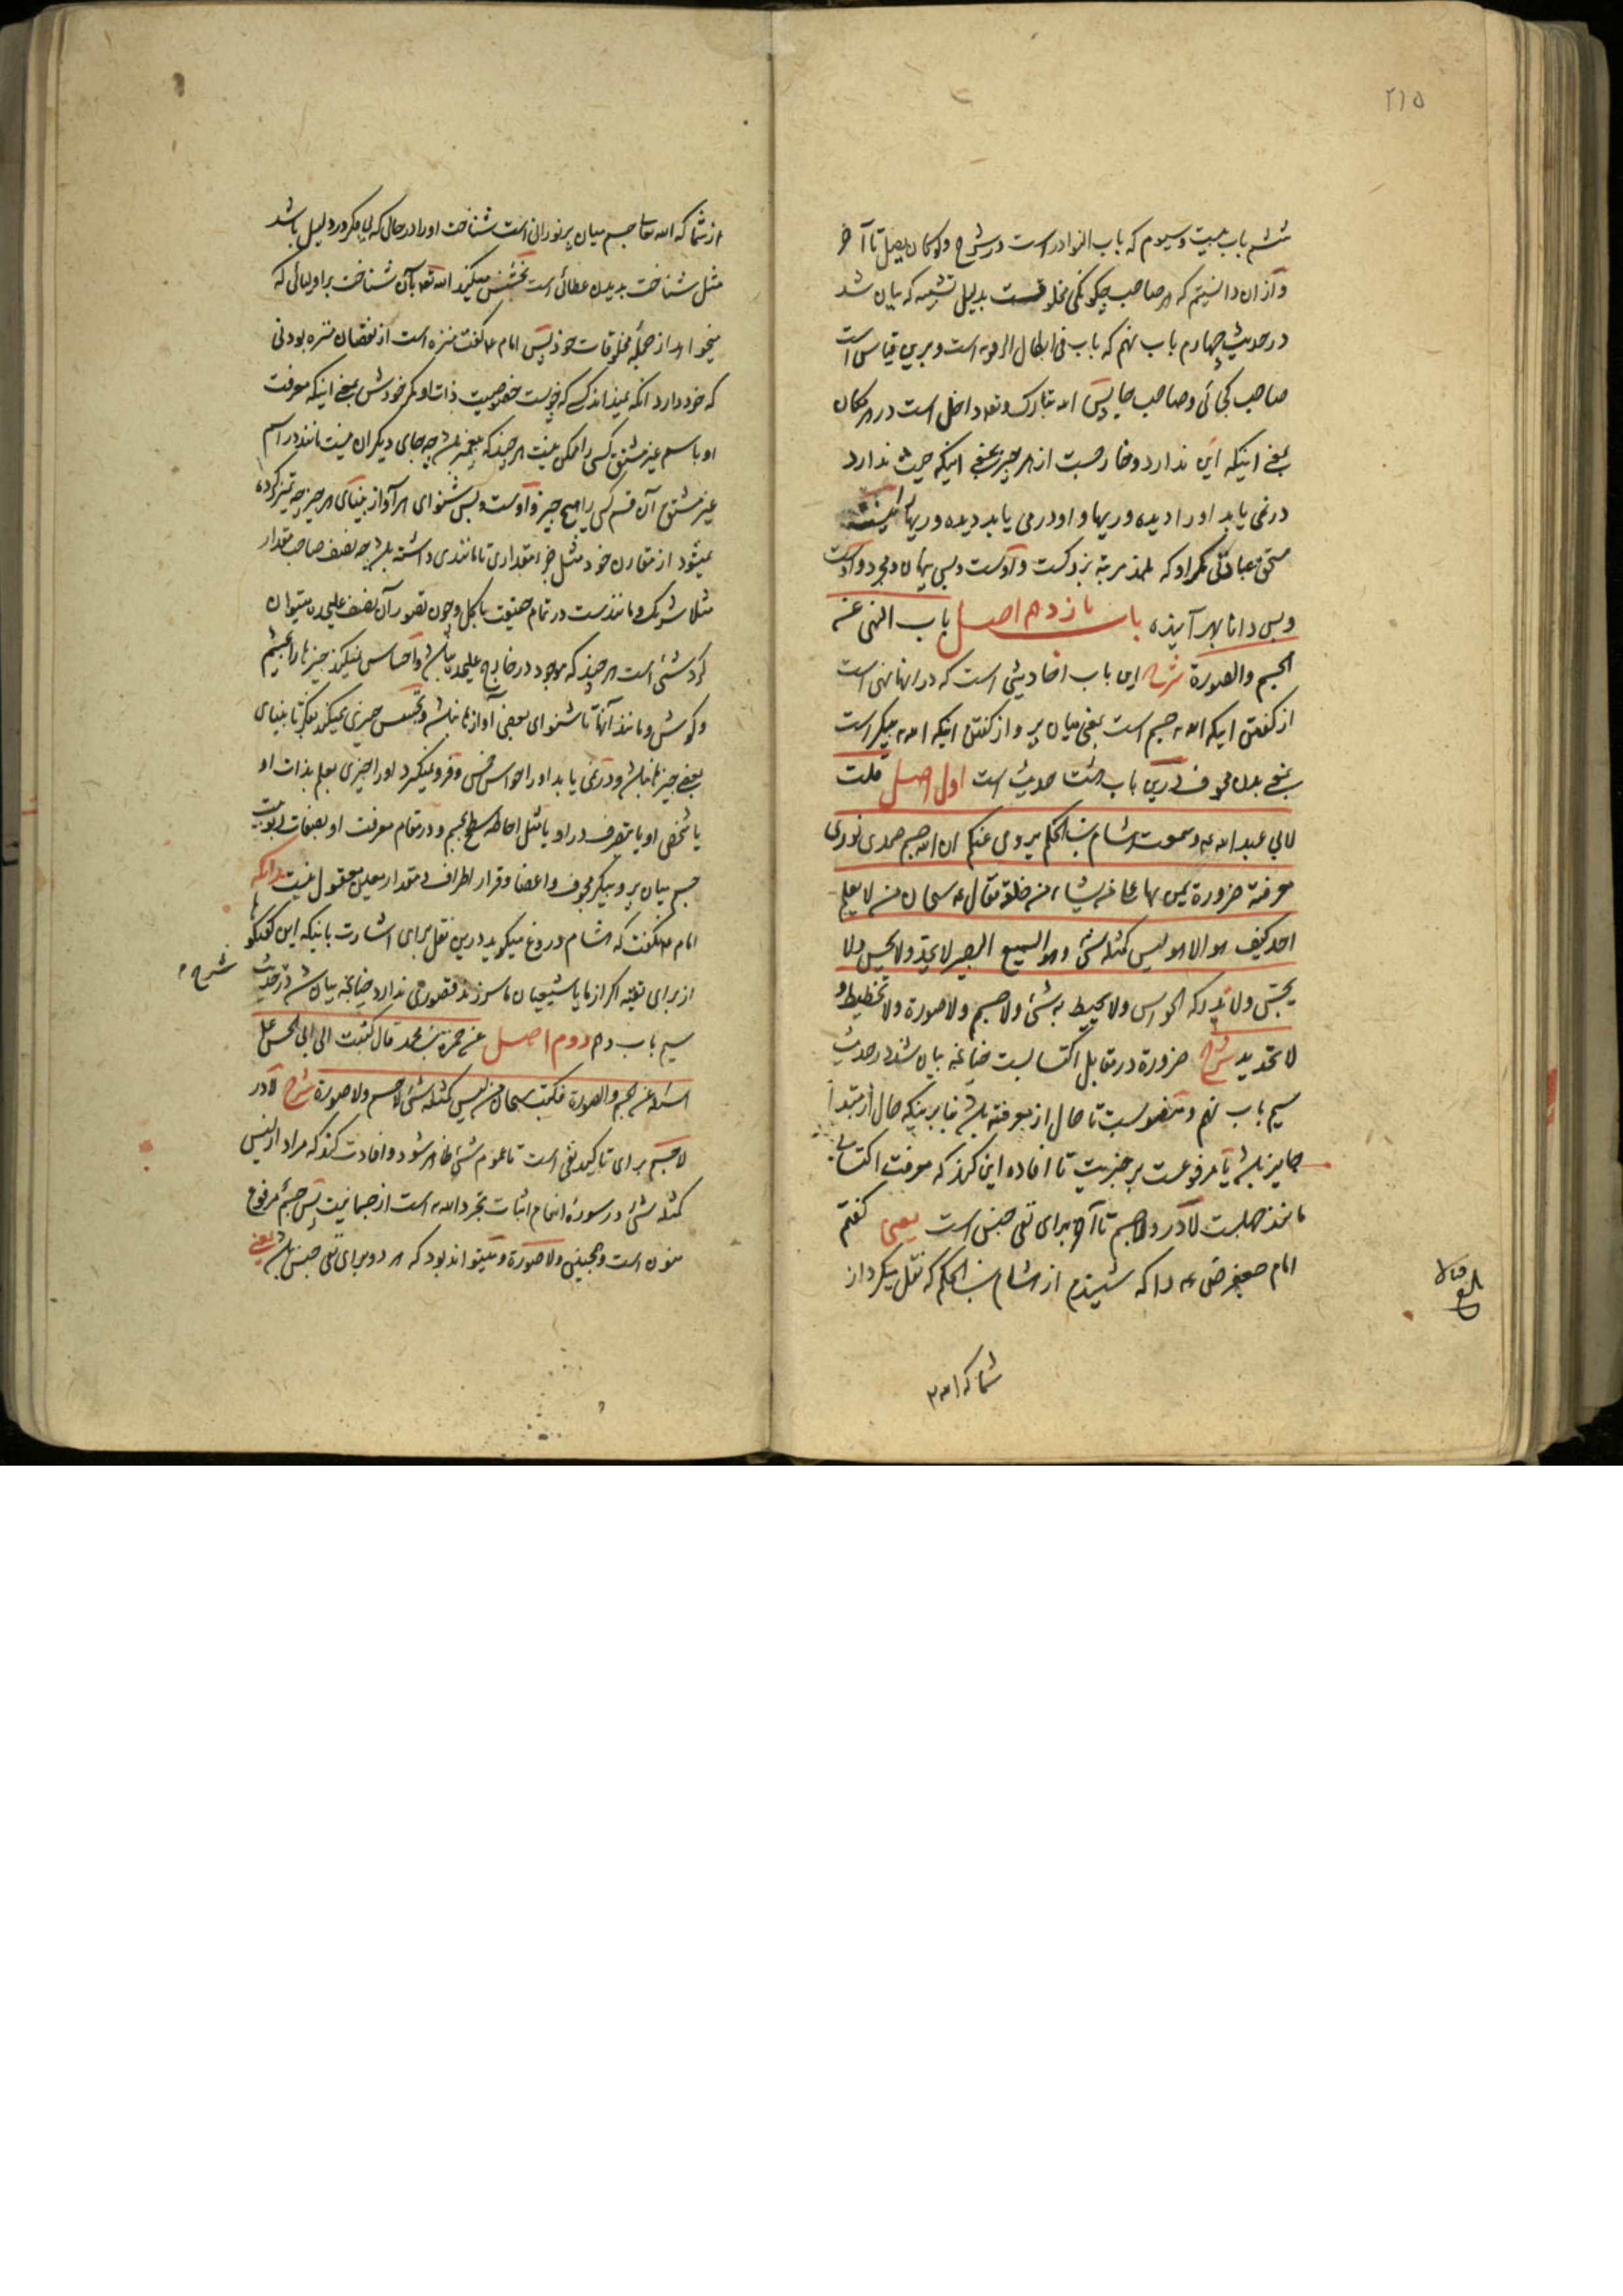 ۲۱۵
ششم باب بیست و سیوم که باب النوادر است در شرح ولو کان یصل تا آخر
و ازان دانستیم که هر صاحب چگونگی مخلوقست بدلیل تشبیه که بیان شد
در حدیث چهارم باب نهم که باب فی ابطال الرویه است و برین قیاس است
صاحب کجائی و صاحب جا پس الله تبارک و تعه داخل است در هر مکان
بمعنی اینکه این ندارد و خارجست از هر چیز بمعنی اینکه حیث ندارد
در نمی یابد او را دیده وریها و او در می یابد دیده وریها را نیست
مستحق عبادتی مگر او که بلند مرتبه بزرگست و اوست و بس مجرد و اوست
و بس دانا بهر آینده باب یازدهم اصل باب النهی عن
الجسم والصورة شرح این باب احادیثی است که در انها نهی است
از گفتن اینکه الله تعه جسم است بمعنی میان پر و از گفتن اینکه الله تعه پیکر است
بمعنی بدن مجوف درین باب هشت حدیث است اول اصل قلت
لابی عبد الله ع سمعت هشام بن الحکم یروی عنکم ان الله جسم صمدی نوری
معرفته ضرورة یمن بها علی من یشاء من خلقه فقال ع سبحان من لا یعلم
احد کیف هو الا هو لیس کمثله شئ وهو السمیع البصیر لا یحد ولا یحس ولا
یجس ولا تدرکه الحواس ولا یحیط به شئ ولا جسم ولا صورة ولا تخطیط و
لا تحدید شرح ضرورة در مقابل اکتسابست چنانچه بیان شد در حدیث
سیم باب نهم و منصوبست تا حال از معرفته باشد بنا بر اینکه حال از مبتدا
جایز باشد یا مرفوعست بر خبریت تا افاده این کند که معرفت اکتسابی
مانند جهلست لا در ولا جسم تا آخر برای نفی جنس است یعنی گفتم
امام جعفر صادق ع را که شنیدم از هشام بن الحکم که نقل میکرد از
شما که الله تعه
از شما که الله تعالی جسم میان پر نورانی است شناخت او را در حالی که بی فکر و دلیل باشد
مثل شناخت بدیدن عطائی است بخشش میکند الله تعه بآن شناخت بر او لیائی که
میخواهد از جمله مخلوقات خود پس امام ع گفت منزه است از نقصان منزه بودنی
که خود دارد آنکه نمیداند کسی که چونست خصوصیت ذات او مگر خودش بمعنی اینکه معرفت
او باسم غیر مشتق کسی را ممکن نیست هر چند که پیغمبر باشد چه جای دیگران نیست مانند در اسم
غیر مشتق آن قسم کسی را هیچ چیز و اوست و بس شنوای هر آواز بینای هر چیز چه تمیز کرده
نمیشود از مقارن خود مثل جزء مقداری تا مانندی داشته باشد چه نصف صاحب مقدار
مثلا شریک و مانندست در تمام حقیقت با کل و چون تصور آن نصف علیحده میتوان
کرد شئی است هر چند که موجود در خارج علیحده نباشد و احساس نمیکند چیزها را بچشم
و گوش و مانند آنها تا شنوای بعض آوازها نباشد و تجسس چیزی نمیکند بفکر تا بینای
بعض چیزها نباشد و در نمی یابد او را حواس خمس و فرو نمیگیرد او را چیزی بعلم بذات او
یا شخص او یا بتصرف در او یا مثل احاطه سطح بجسم و در مقام معرفت او بصفات ربوبیت
جسم میان پر و پیکر مجوف و اعضا و قرار اطراف و مقدار معین معقول نیست بدانکه
امام ع نگفت که هشام دروغ میگوید درین نقل برای اشارت باینکه این گفتگوها
از برای تقیه اگر از ما یا شیعیان ما سر زند قصوری ندارد چنانچه بیان شد در حدیث
شرح
سیم باب دهم دوم اصل عن حمزة بن محمد قال کتبت الی ابی الحسن علی
اسئله عن الجسم والصورة فکتب سبحان من لیس کمثله شئ لا جسم ولا صورة شرح لا در
لا جسم برای تاکید نفی است تا عموم شئ ظاهر شود و افادت کند که مراد از لیس
کمثله شئ در سورهٔ انعام اثبات تجرد الله تعه است از جسمانیت پس جسم مرفوع
منون است و همچنین ولا صورة و میتواند بود که هر دو برای نفی جنس باشد یعنی